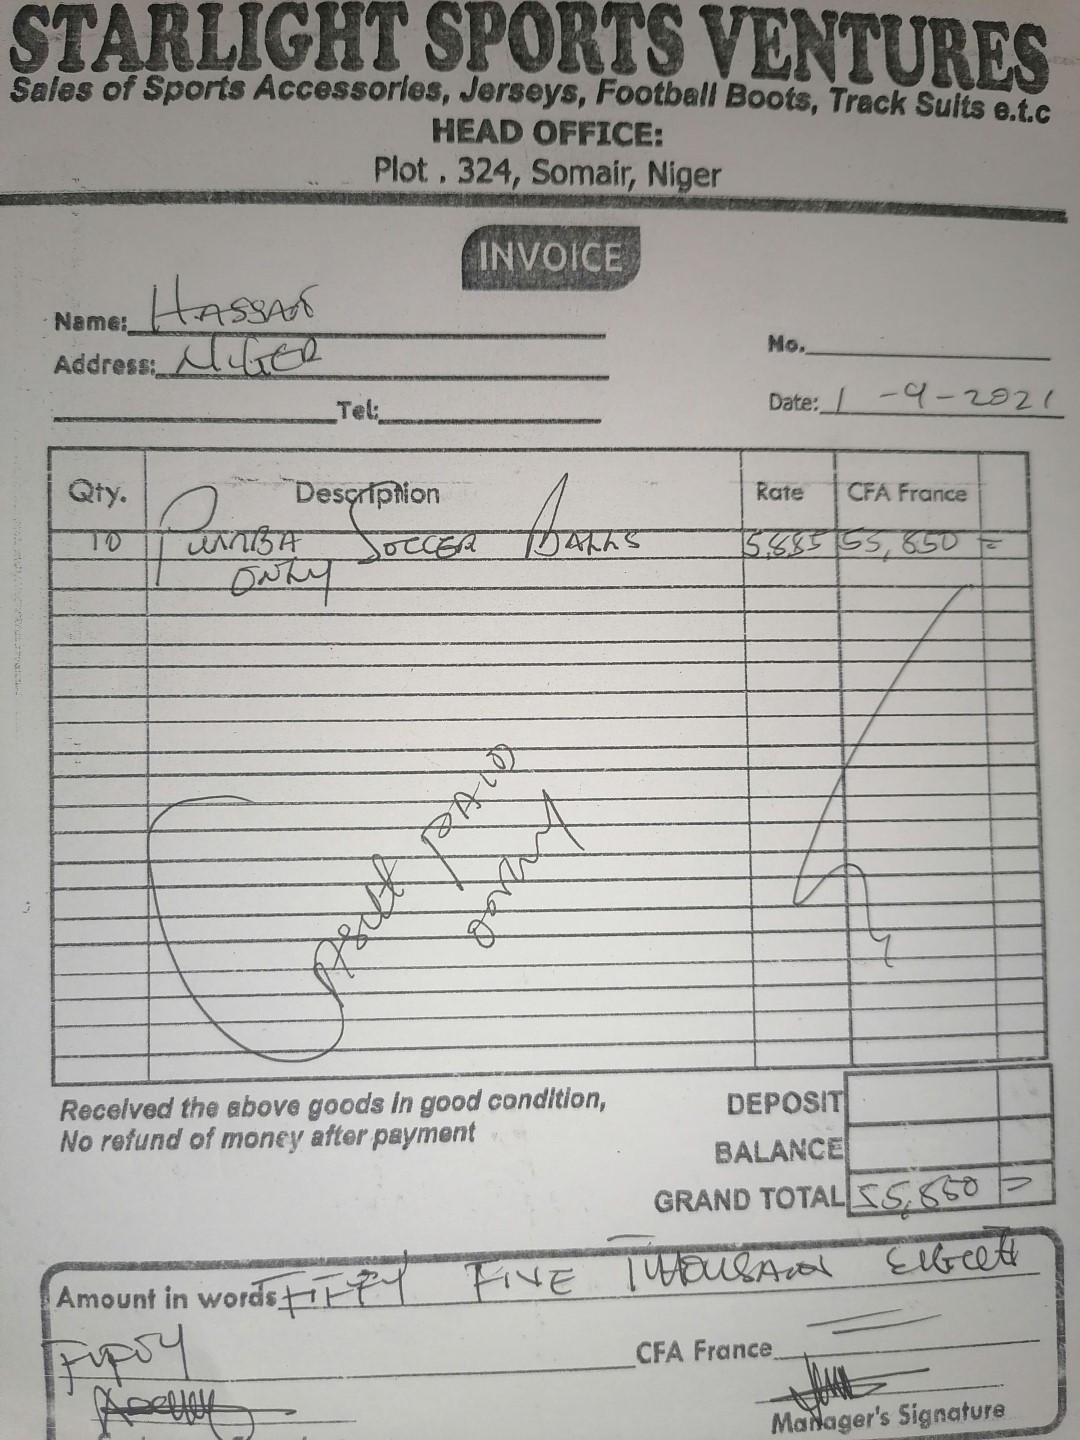 STARLIGHT SPORTS VENTURES
Sales of Sports Accessories, Jerseys, Football Boots, Track Suits e.t.c
HEAD OFFICE:
Plot . 324, Somair, Niger
INVOICE
Name: HASSAN
Address: NIGER
No.
Tel:
Date: 1-9-2021
Qty. Description Rate CFA France
10 PUMBA SOCCER BALLS 5,885 55,850 =
ONLY
PAID
Received the above goods in good condition,
No refund of money after payment
DEPOSIT
BALANCE
GRAND TOTAL 55,850 =
Amount in words FIFTY FIVE THOUSAN EIGHT
FIFTY
CFA France
Manager's Signature